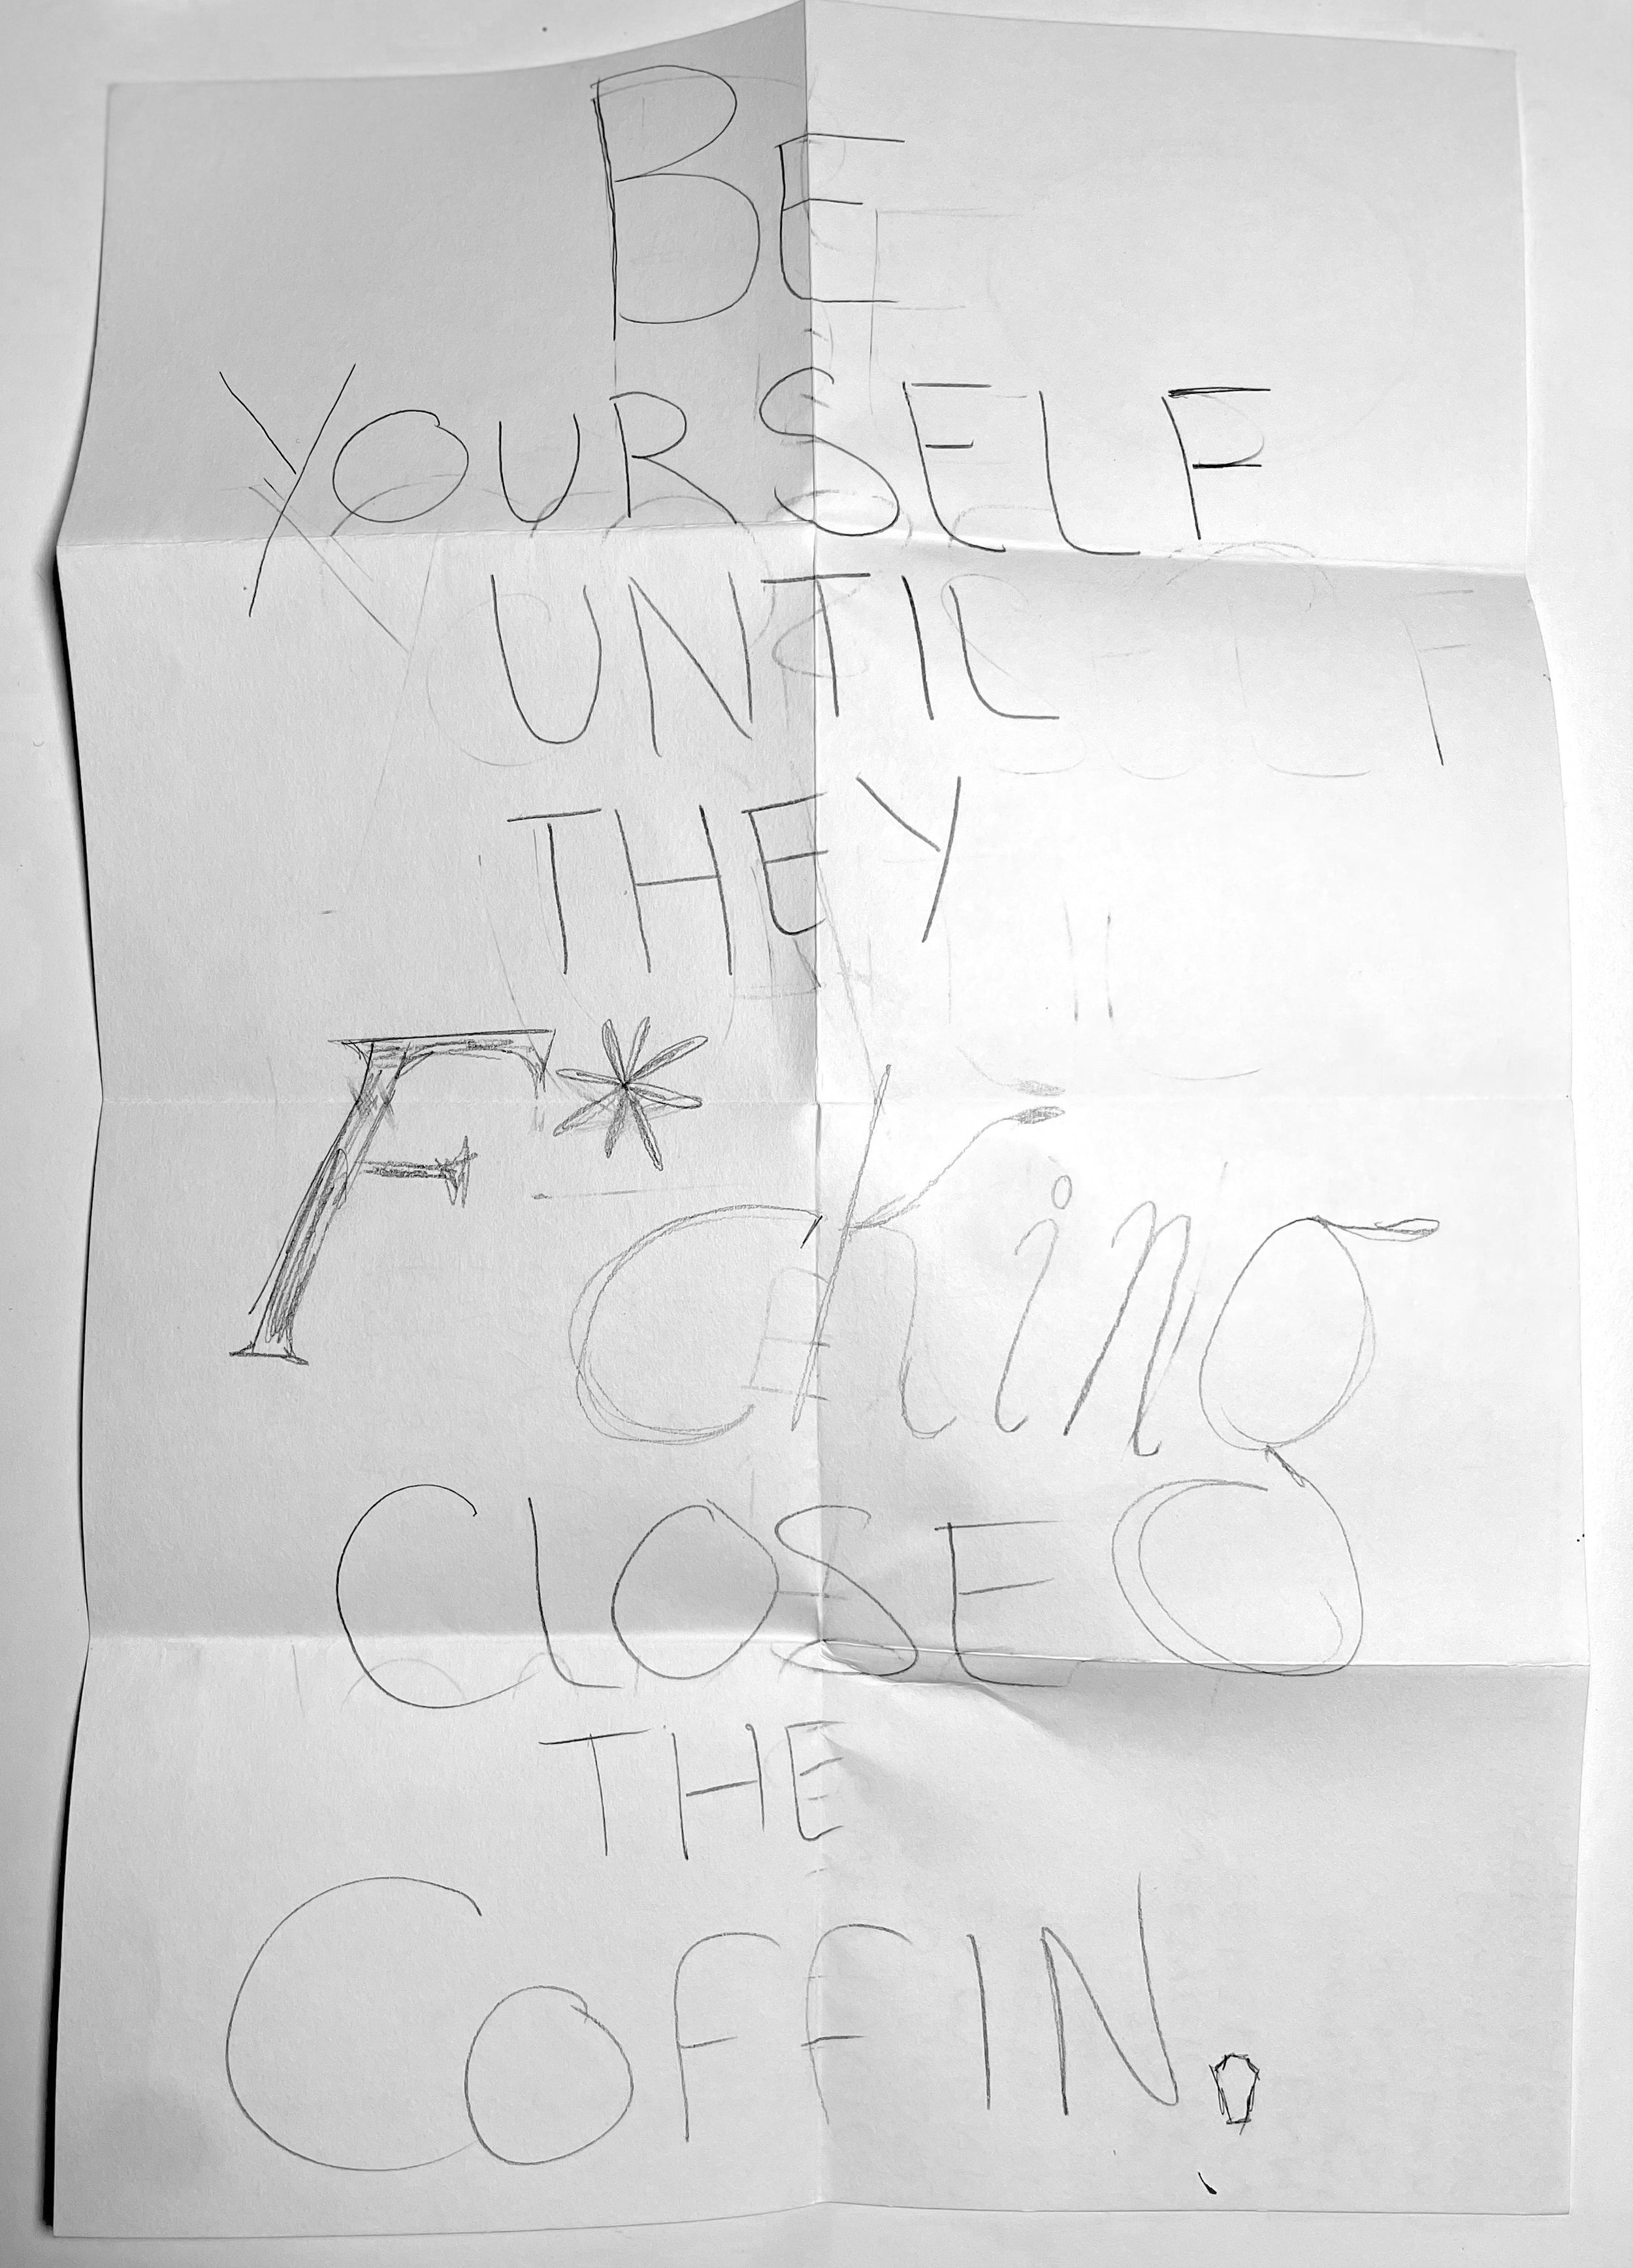 BE
YOURSELF
UNTIL
THEY
F*cking
CLOSE
THE
COFFIN.